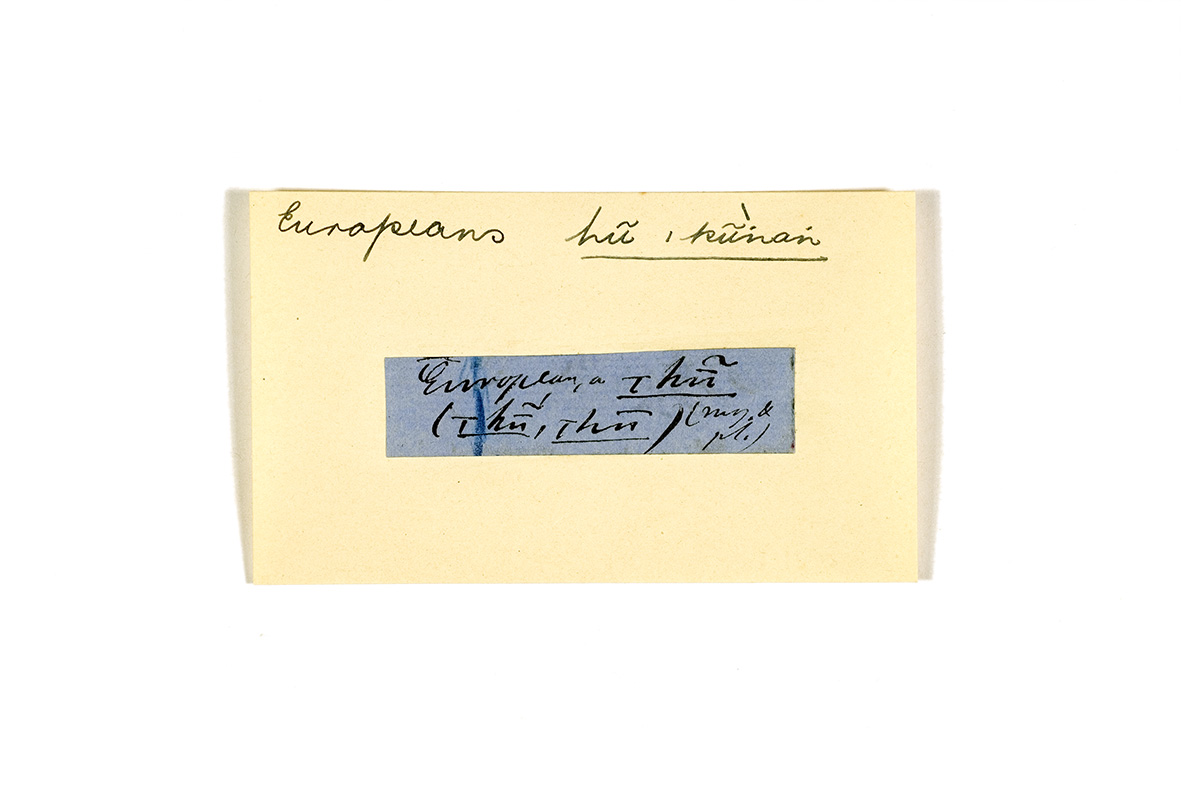 Europeans hũ ı kũ̀nan
European, a ɪ hũ
(ɪ hũ, ɪ hū) (sing. &
pl.)